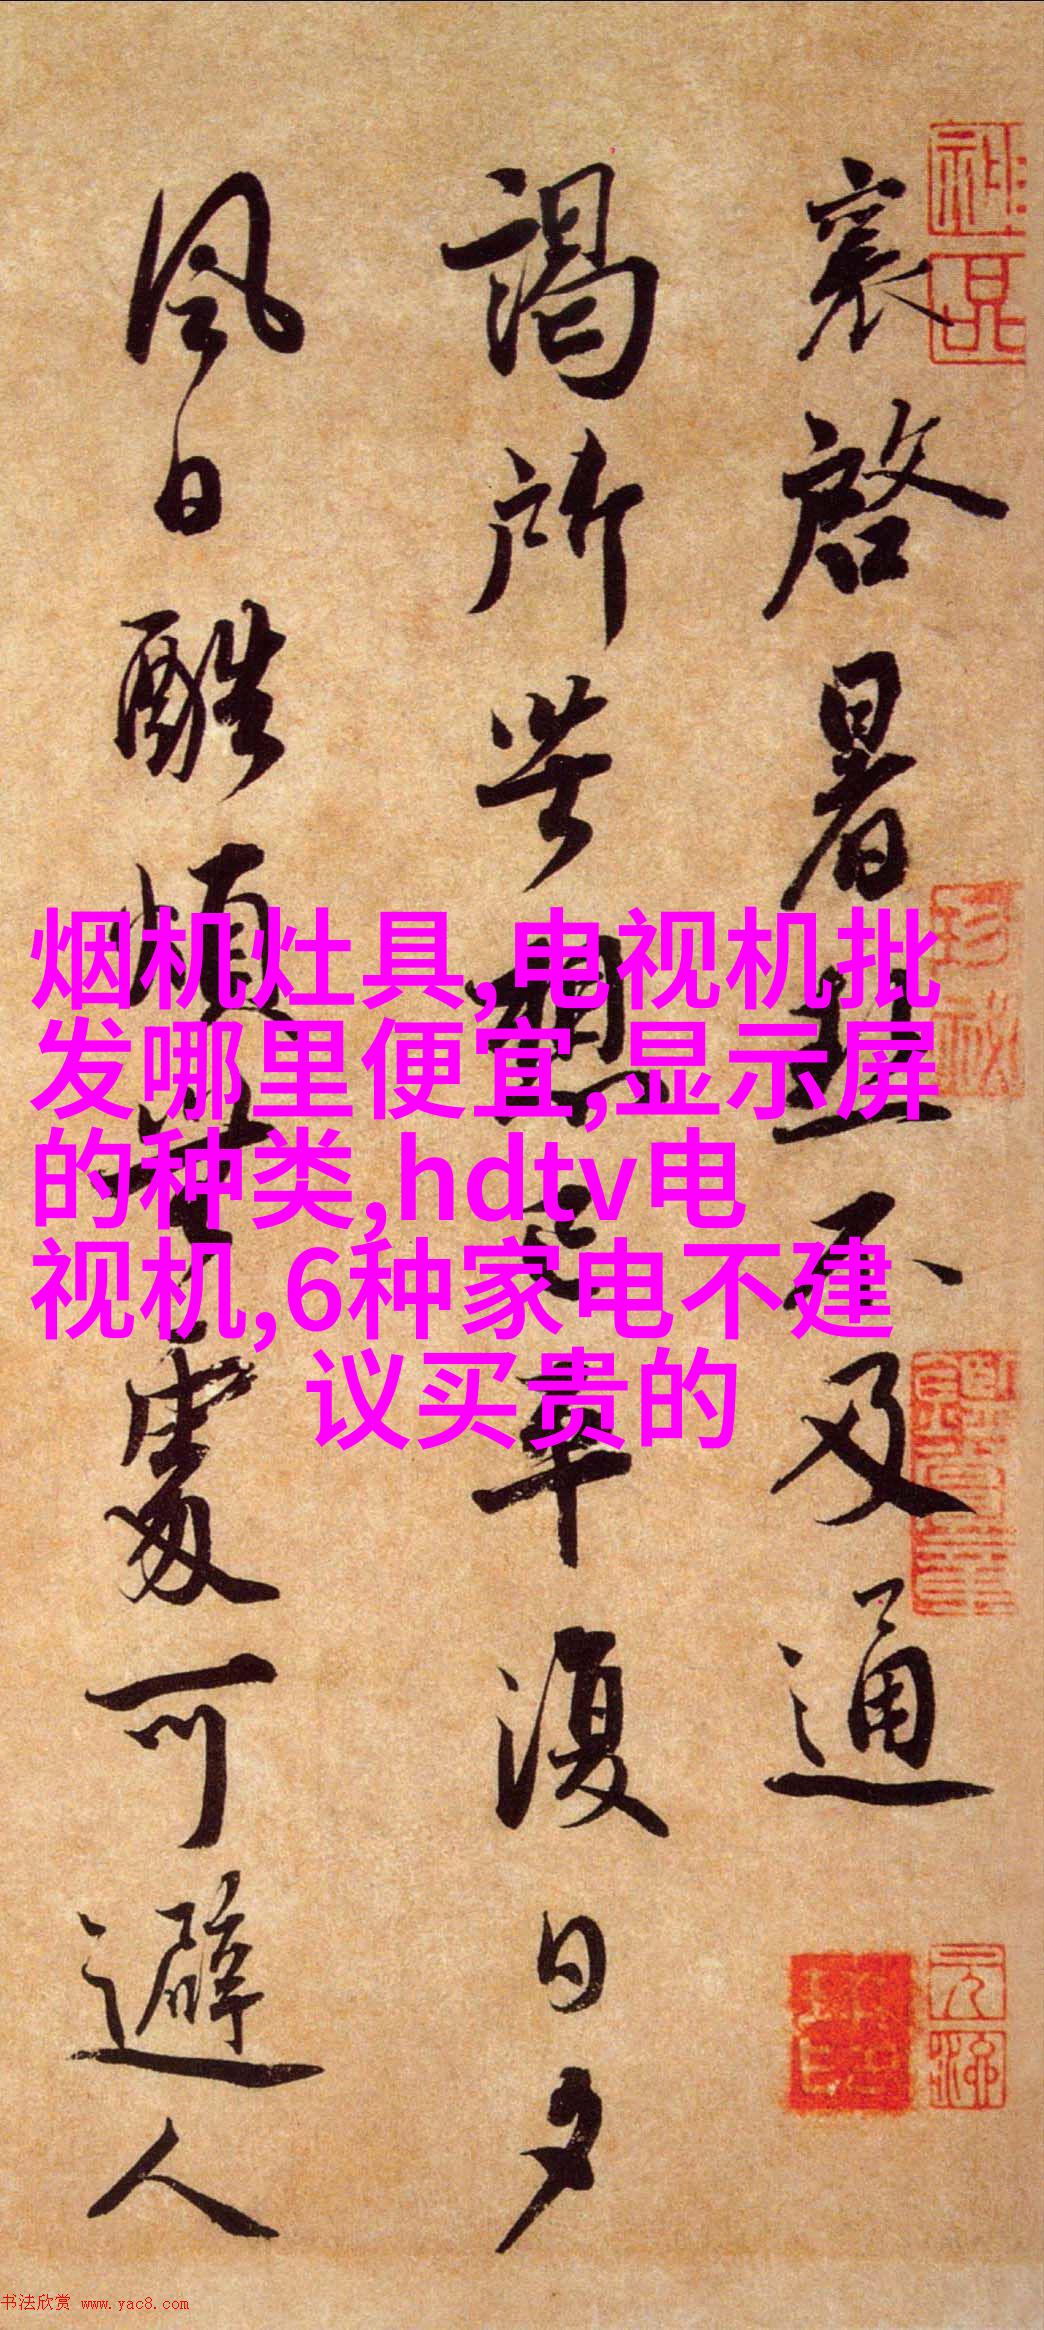 襄啓暑熱不及通
謁所苦想已平復日夕
風日酷煩無處可避人
烟机灶具,电视机批
发哪里便宜,显示屏
的种类,hdtv电
视机,6种家电不建
议买贵的
书法欣赏 www.yac8.com